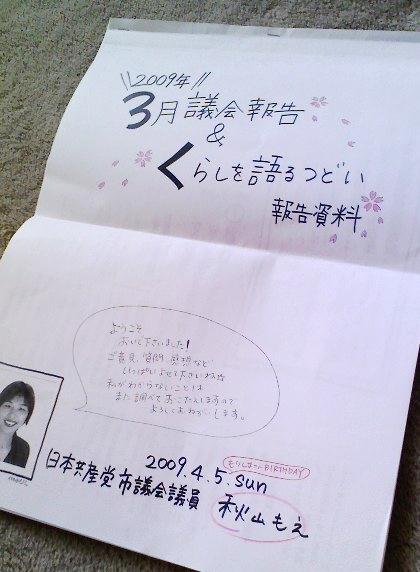 2009年
3月議会報告
&
くらしを語るつどい
報告資料
ようこそ
おいで下さいました!
ご意見、質問、感想など
いっぱいよせて下さいね
私がわからないことは
また調べておこたえしますので
よろしくおねがいします。
2009.4.5.sun
BIRTHDAY
日本共産党市議会議員 秋山もえ